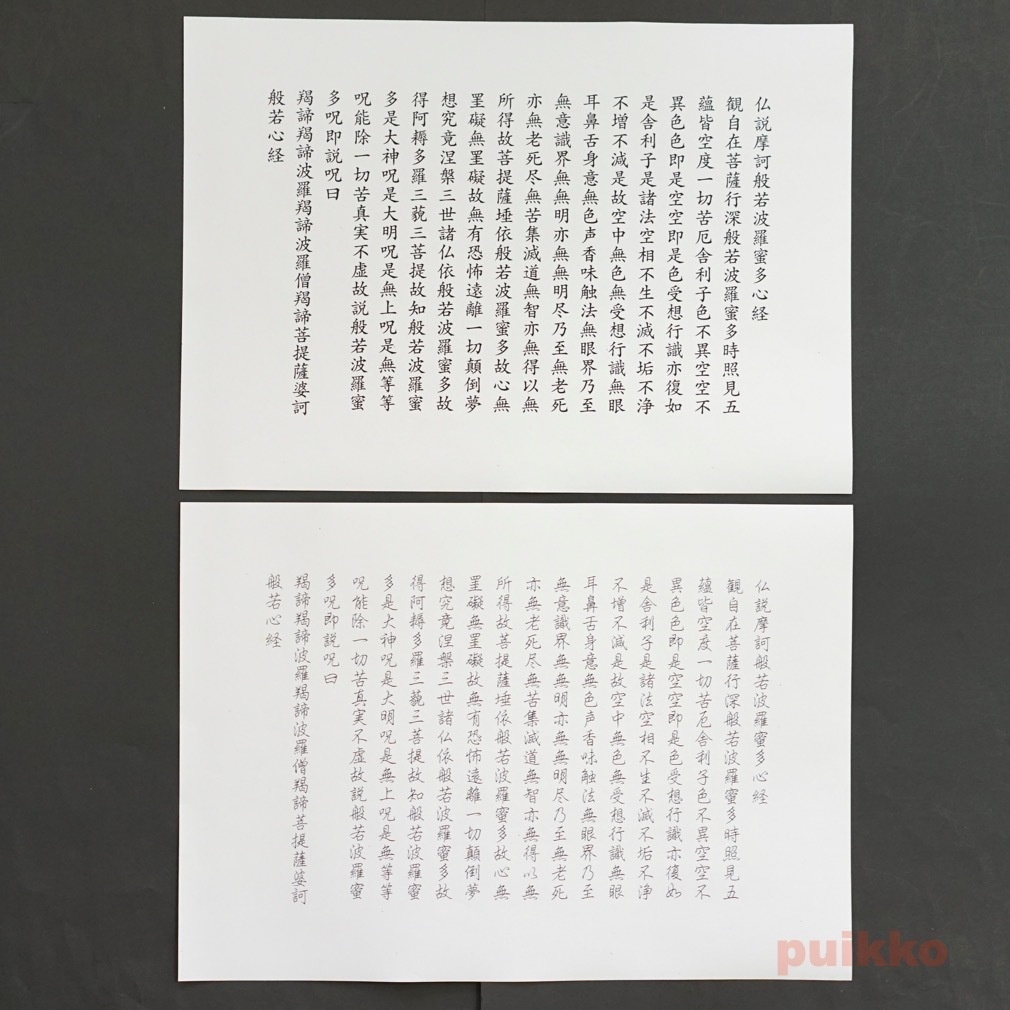 仏説摩訶般若波羅蜜多心経
観自在菩薩行深般若波羅蜜多時照見五
蘊皆空度一切苦厄舎利子色不異空空不
異色色即是空空即是色受想行識亦復如
是舎利子是諸法空相不生不滅不垢不浄
不増不減是故空中無色無受想行識無眼
耳鼻舌身意無色声香味触法無眼界乃至
無意識界無無明亦無無明尽乃至無老死
亦無老死尽無苦集滅道無智亦無得以無
所得故菩提薩埵依般若波羅蜜多故心無
罣礙無罣礙故無有恐怖遠離一切顛倒夢
想究竟涅槃三世諸仏依般若波羅蜜多故
得阿耨多羅三藐三菩提故知般若波羅蜜
多是大神呪是大明呪是無上呪是無等等
呪能除一切苦真実不虚故説般若波羅蜜
多呪即説呪曰
羯諦羯諦波羅羯諦波羅僧羯諦菩提薩婆訶
般若心経
仏説摩訶般若波羅蜜多心経
観自在菩薩行深般若波羅蜜多時照見五
蘊皆空度一切苦厄舎利子色不異空空不
異色色即是空空即是色受想行識亦復如
是舎利子是諸法空相不生不滅不垢不浄
不増不減是故空中無色無受想行識無眼
耳鼻舌身意無色声香味触法無眼界乃至
無意識界無無明亦無無明尽乃至無老死
亦無老死尽無苦集滅道無智亦無得以無
所得故菩提薩埵依般若波羅蜜多故心無
罣礙無罣礙故無有恐怖遠離一切顛倒夢
想究竟涅槃三世諸仏依般若波羅蜜多故
得阿耨多羅三藐三菩提故知般若波羅蜜
多是大神呪是大明呪是無上呪是無等等
呪能除一切苦真実不虚故説般若波羅蜜
多呪即説呪曰
羯諦羯諦波羅羯諦波羅僧羯諦菩提薩婆訶
般若心経
puikko